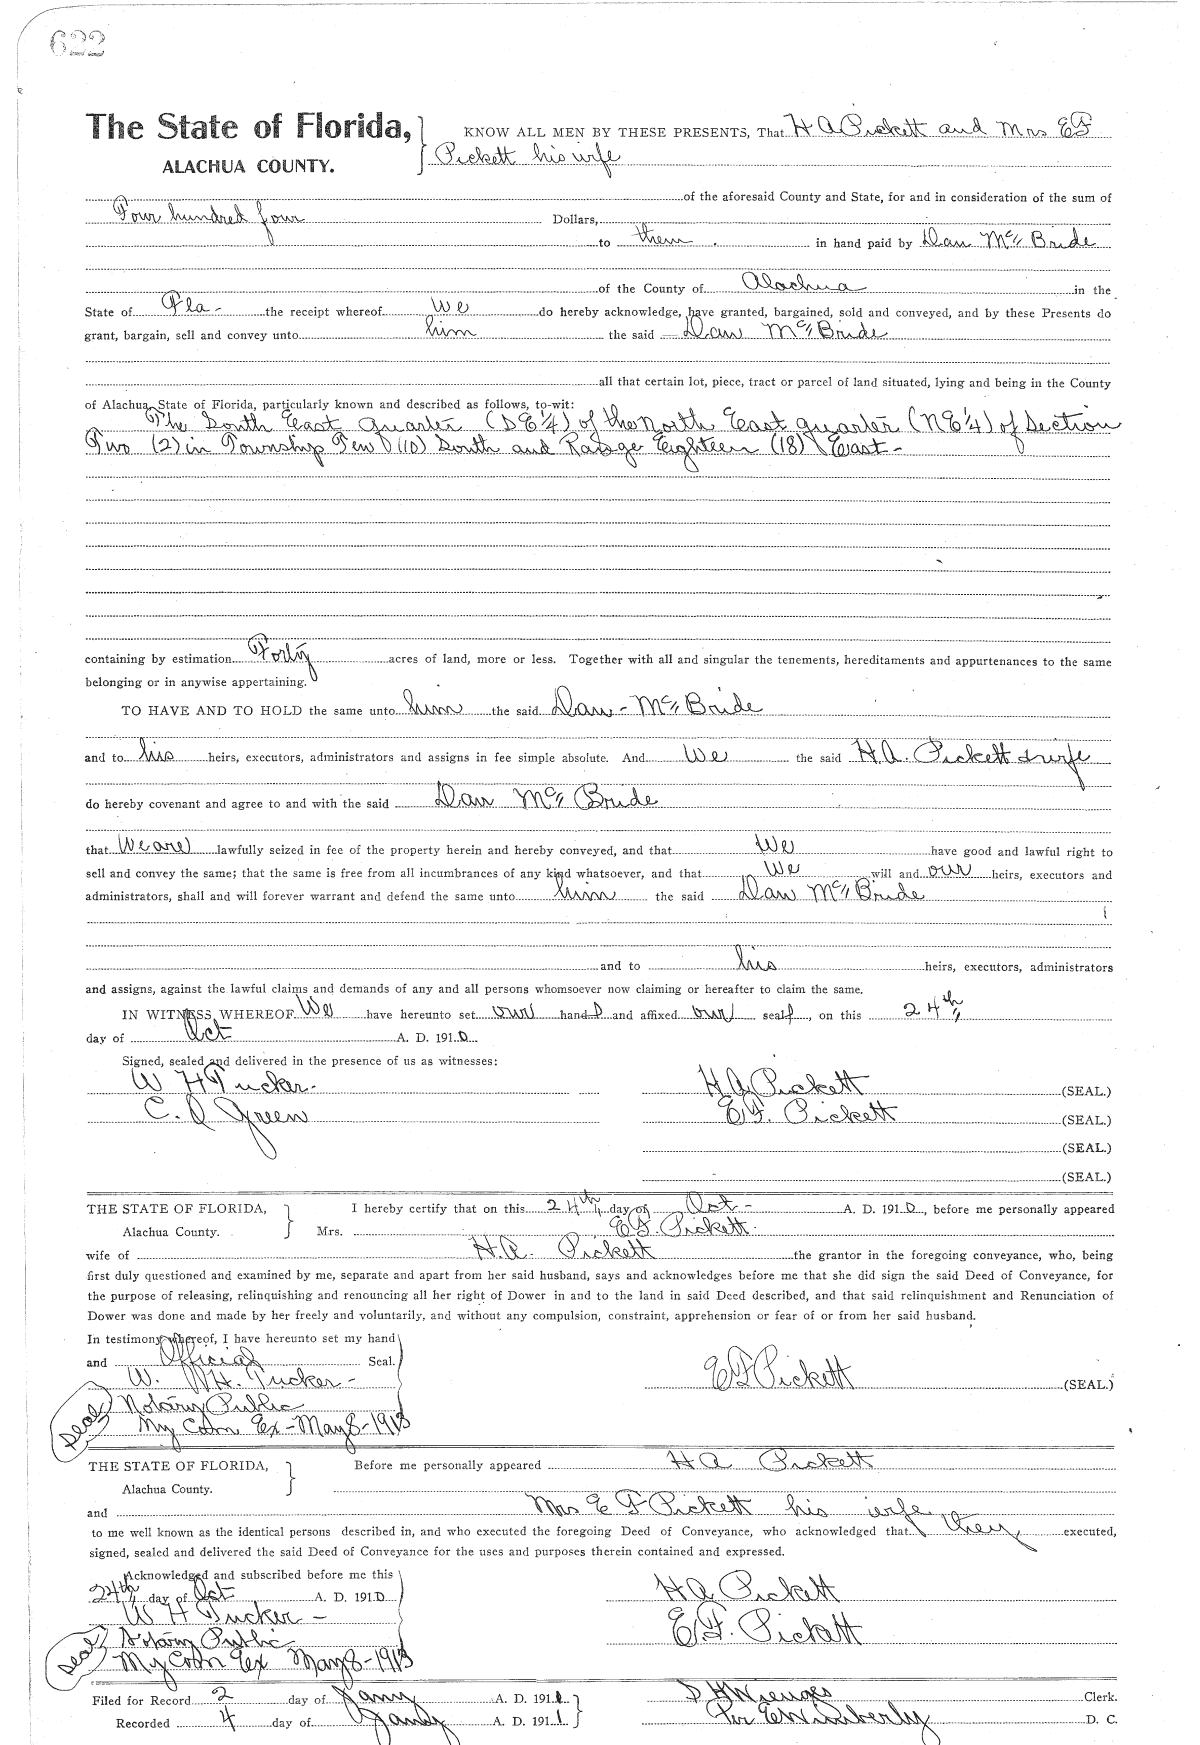 622
The State of Florida, } KNOW ALL MEN BY THESE PRESENTS, That H A Pickett and Mrs E F
ALACHUA COUNTY. Pickett his wife
of the aforesaid County and State, for and in consideration of the sum of
Four hundred four Dollars,
to them in hand paid by Dan McBride
of the County of Alachua in the
State of Fla - the receipt whereof We do hereby acknowledge, have granted, bargained, sold and conveyed, and by these Presents do
grant, bargain, sell and convey unto him the said Dan McBride
all that certain lot, piece, tract or parcel of land situated, lying and being in the County
of Alachua, State of Florida, particularly known and described as follows, to-wit:
The South East Quarter (S E 1/4) of the North East quarter (N E 1/4) of Section
Two (2) in Township Ten (10) South and Range Eighteen (18) East -
containing by estimation Forty acres of land, more or less. Together with all and singular the tenements, hereditaments and appurtenances to the same
belonging or in anywise appertaining.
TO HAVE AND TO HOLD the same unto him the said Dan - McBride
and to his heirs, executors, administrators and assigns in fee simple absolute. And We the said H.A. Pickett & wife
do hereby covenant and agree to and with the said Dan McBride
that We are lawfully seized in fee of the property herein and hereby conveyed, and that We have good and lawful right to
sell and convey the same; that the same is free from all incumbrances of any kind whatsoever, and that We will and our heirs, executors and
administrators, shall and will forever warrant and defend the same unto him the said Dan McBride
and to his heirs, executors, administrators
and assigns, against the lawful claims and demands of any and all persons whomsoever now claiming or hereafter to claim the same.
IN WITNESS WHEREOF We have hereunto set our hands and affixed our seals, on this 24th
day of Oct A. D. 1910
Signed, sealed and delivered in the presence of us as witnesses:
W H Tucker - H A Pickett (SEAL.)
Green E F. Pickett (SEAL.)
(SEAL.)
(SEAL.)
THE STATE OF FLORIDA, } I hereby certify that on this 24th day of Oct - A. D. 1910, before me personally appeared
Alachua County. Mrs. E F. Pickett
wife of H.A. Pickett the grantor in the foregoing conveyance, who, being
first duly questioned and examined by me, separate and apart from her said husband, says and acknowledges before me that she did sign the said Deed of Conveyance, for
the purpose of releasing, relinquishing and renouncing all her right of Dower in and to the land in said Deed described, and that said relinquishment and Renunciation of
Dower was done and made by her freely and voluntarily, and without any compulsion, constraint, apprehension or fear of or from her said husband.
In testimony whereof, I have hereunto set my hand
and Official Seal.
W. H. Tucker - E F Pickett (SEAL.)
Seal Notary Public
My Com Ex - May 8 - 1913
THE STATE OF FLORIDA, } Before me personally appeared H A Pickett
Alachua County.
and Mrs E F Pickett his wife
to me well known as the identical persons described in, and who executed the foregoing Deed of Conveyance, who acknowledged that they executed,
signed, sealed and delivered the said Deed of Conveyance for the uses and purposes therein contained and expressed.
Acknowledged and subscribed before me this
24th day of Oct A. D. 1910 H A Pickett
W H Tucker - E. F. Pickett
Seal Notary Public
My Com Ex May 8 - 1913
Filed for Record 2 day of Jany A. D. 1911 S H Wienges Clerk.
Recorded 4 day of Jany A. D. 1911 Per E Wimberly D. C.